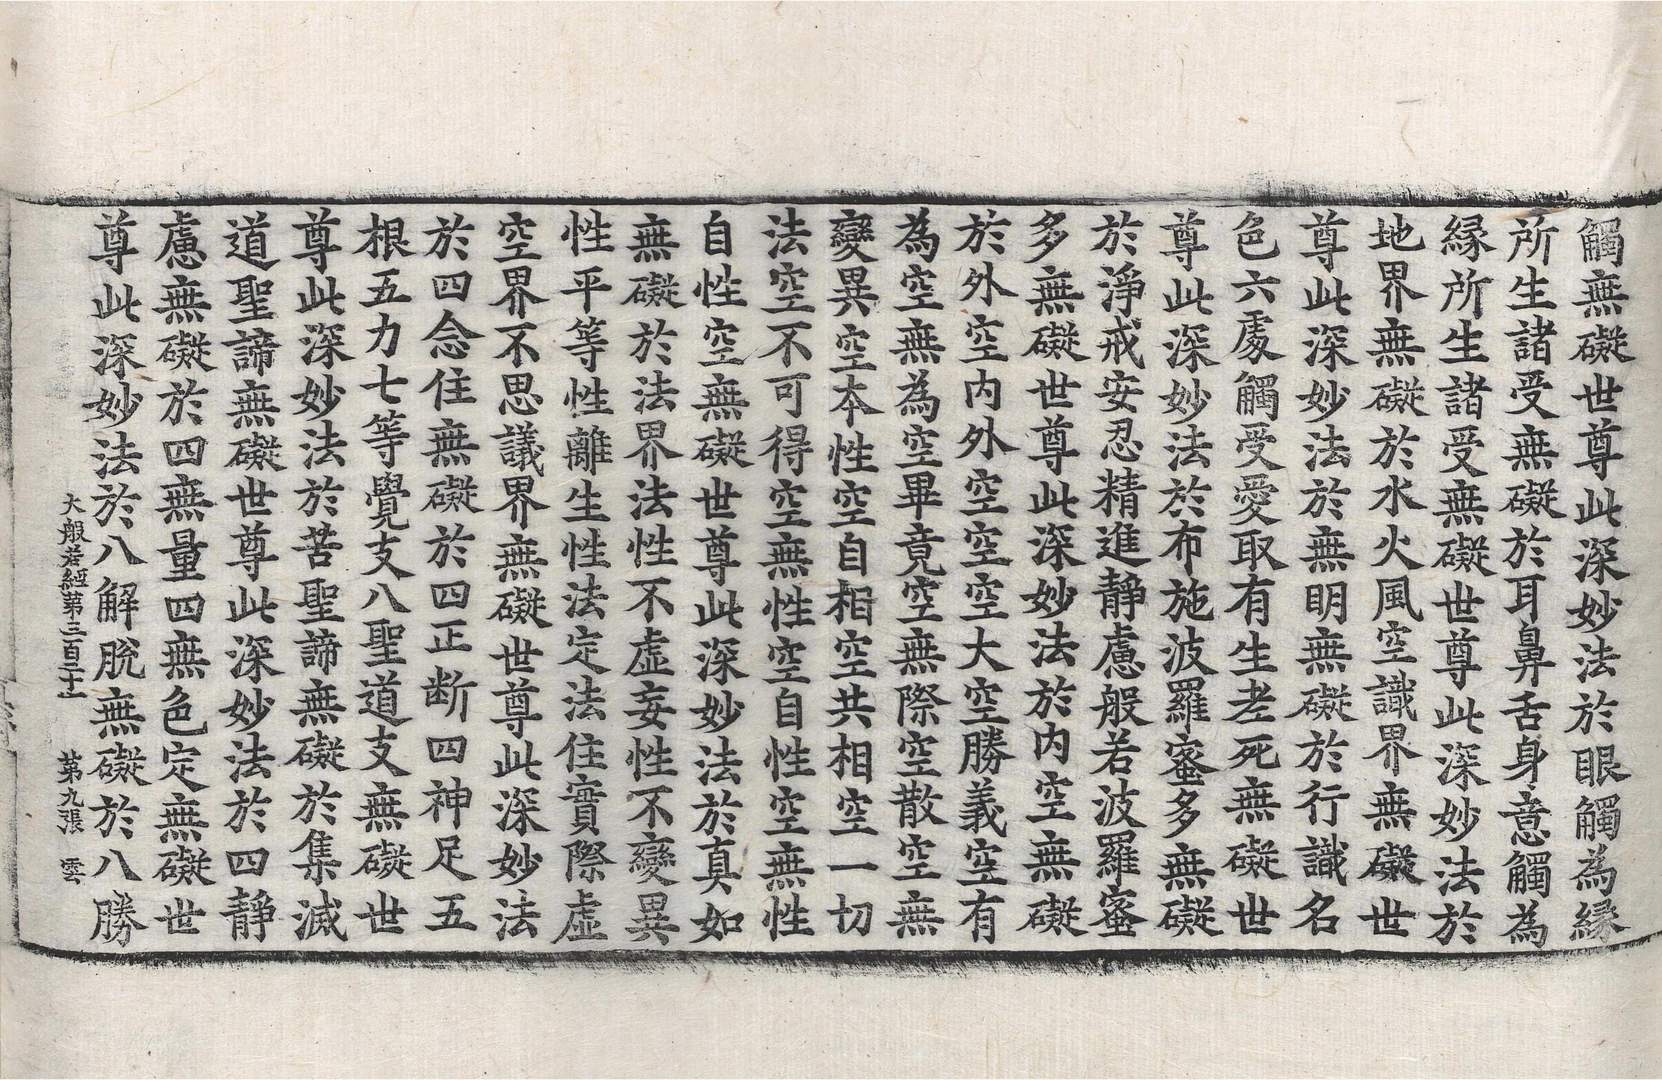 觸無礙世尊此深妙法於眼觸為緣
所生諸受無礙於耳鼻舌身意觸為
緣所生諸受無礙世尊此深妙法於
地界無礙於水火風空識界無礙世
尊此深妙法於無明無礙於行識名
色六處觸受愛取有生老死無礙世
尊此深妙法於布施波羅蜜多無礙
於淨戒安忍精進靜慮般若波羅蜜
多無礙世尊此深妙法於內空無礙
於外空內外空空空大空勝義空有
為空無為空畢竟空無際空散空無
變異空本性空自相空共相空一切
法空不可得空無性空自性空無性
自性空無礙世尊此深妙法於真如
無礙於法界法性不虛妄性不變異
性平等性離生性法定法住實際虛
空界不思議界無礙世尊此深妙法
於四念住無礙於四正断四神足五
根五力七等覺支八聖道支無礙世
尊此深妙法於苦聖諦無礙於集滅
道聖諦無礙世尊此深妙法於四靜
慮無礙於四無量四無色定無礙世
尊此深妙法於八解脫無礙於八勝
大般若經第三百二十 第九張 雲